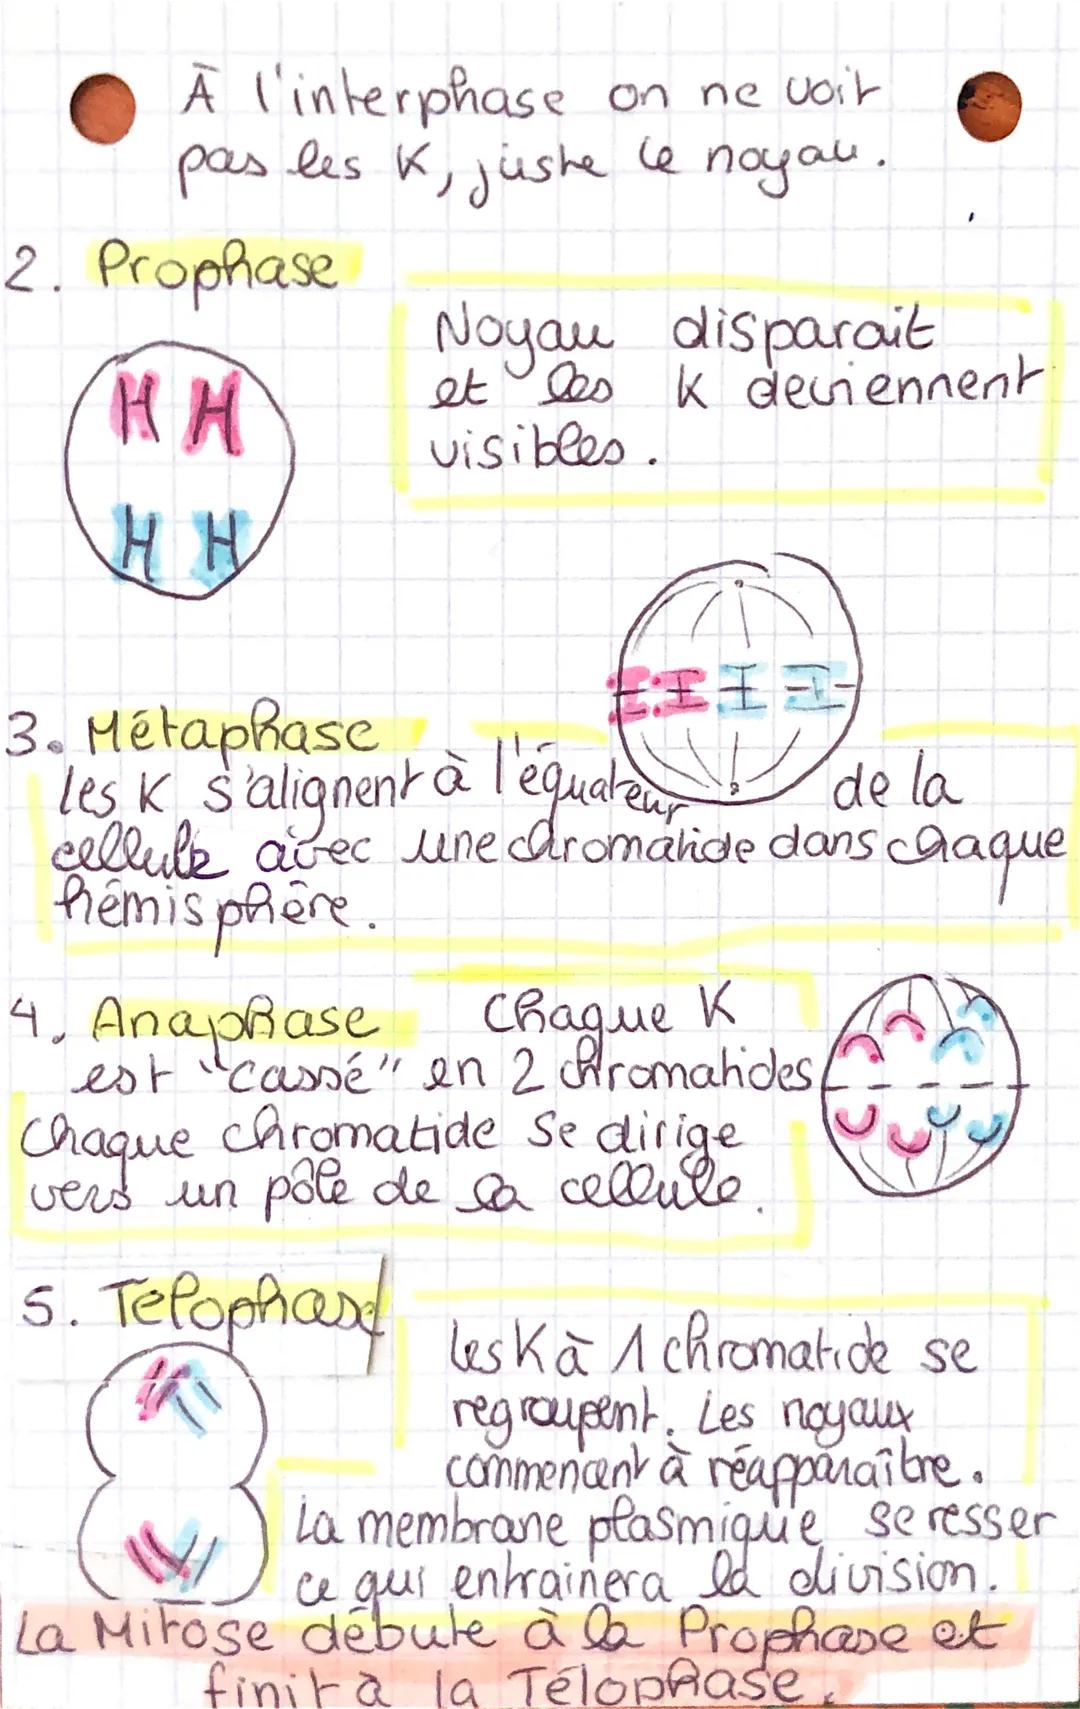 À l'interphase on ne voit
pas les K, juste le noyau.
2. Prophase
Noyau disparait
et les K deviennent
visibles.
3. Métaphase
les K s'alignent à l'équateur de la
cellule avec une chromatide dans chaque
hémisphère.
4. Anaphase Chaque K
est "cassé" en 2 chromatides
Chaque chromatide se dirige
vers un pôle de la cellule.
5. Telophase
Les K à 1 chromatide se
regroupent. Les noyaux
commencent à réapparaître.
La membrane plasmique se resser
ce qui entrainera la division.
La Mitose débute à la Prophase et
finit à la Télophase.